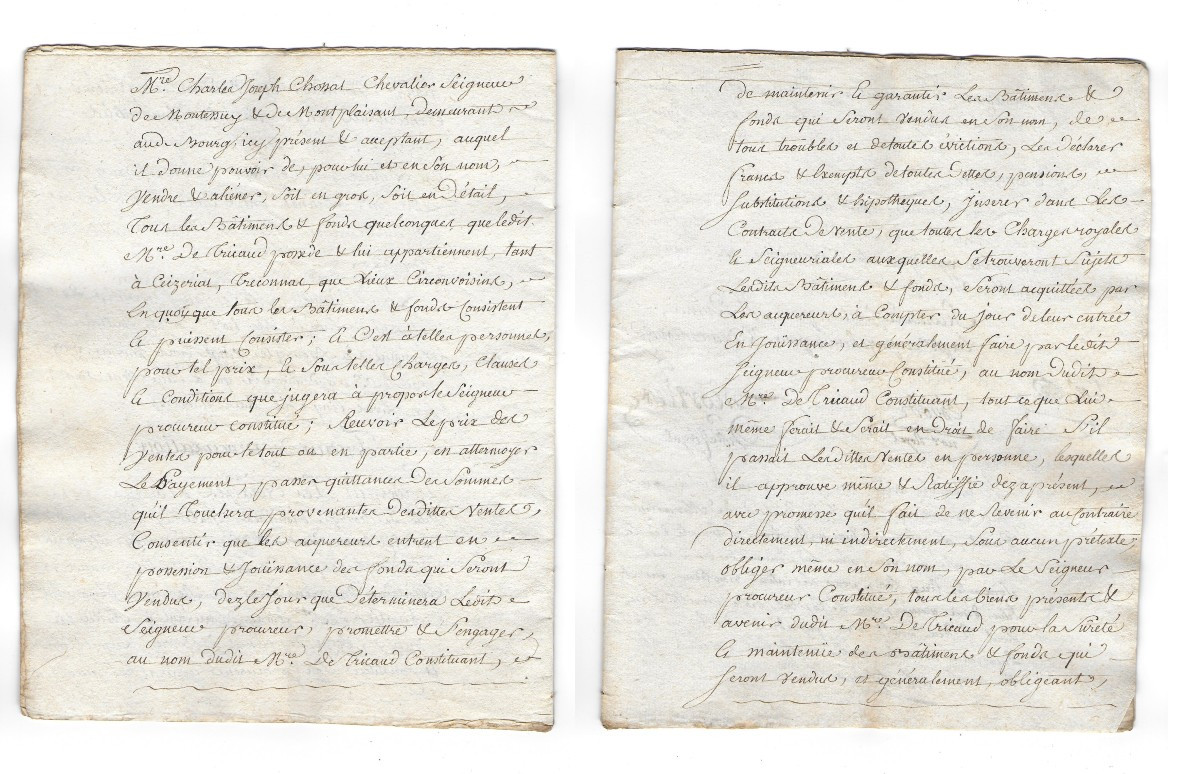 Mre. Charles Joseph Chossat Chevalier Seigneur
de Montessuy & de Montplaisant, demeurant
aud. Bourg, icy présent & acceptant, auquel
il donne pouvoir de, pour lui et en son nom,
Vendre & aliéner, soit en gros, soit en Détail,
Tous les Bâtimens & fonds quelconques que ledit
Mre. De Tricaud possède & lui appartiennent, tant
à Ceizeriat, Treconnas, que Lieux Circonvoisins,
En quoy que tous les Bâtimens & fonds Consistent
& puissent Consister; & C'est à telles personnes,
pour tel prix, & Sous telles Charges, Clauses
& Conditions que jugera à propos le Seigneur
procureur constitué; Recevoir Le prix des
Ventes pour le tout ou en partie, en attermoyer
Le Payement, passer quittances des Sommes
qu'il Touchera, provenantes Desdittes Ventes,
Consentir que les acquereurs entrent en
possession & Joüissance des fonds qui Seront
Vendus, dez le Jour que Déterminera Ledit
Seigneur procureur, promettre & S'engager,
au nom dudit Mre. De Tricaud Constituant,
de maintenir & garantir Les Bâtimens &
fonds qui seront vendus en Son nom, de
tous troubles et de toutes évictions, Les Déclarer
francs & Exempts de toutes Dettes, pensions,
Substitutions & hipothèques, Inserer dans Les
Contrats de Vente, que toutes les Charges royales
& Seigneuriales auxquelles Se trouveront Sujets
Lesdits Bâtimens & fonds, Seront acquittées par
Les acquereurs, à Compter du Jour de leur entrée
En Joüissance, et généralement faire par ledit
Seigneur procureur Constitué, au nom dudit
Mre. De Tricaud Constituant, tout ce que Lui
même ferait & Serait en Droit de faire S'il
passait Lesdittes Ventes en personne, lesquelles
il approuve même & Ratiffie dez à présent,
avec promesse qu'il fait de ne Revenir au Contraire
directement, ni indirectement, Sous aucun prétexte;
obliger même en Son nom, par Le Seigneur
procureur Constitué, tous les biens présents &
avenir dudit Mre. De Tricaud pour la Sûreté
& maintenüe des Bâtimens & fonds qui
Seront vendus, et généralement, obligeant,